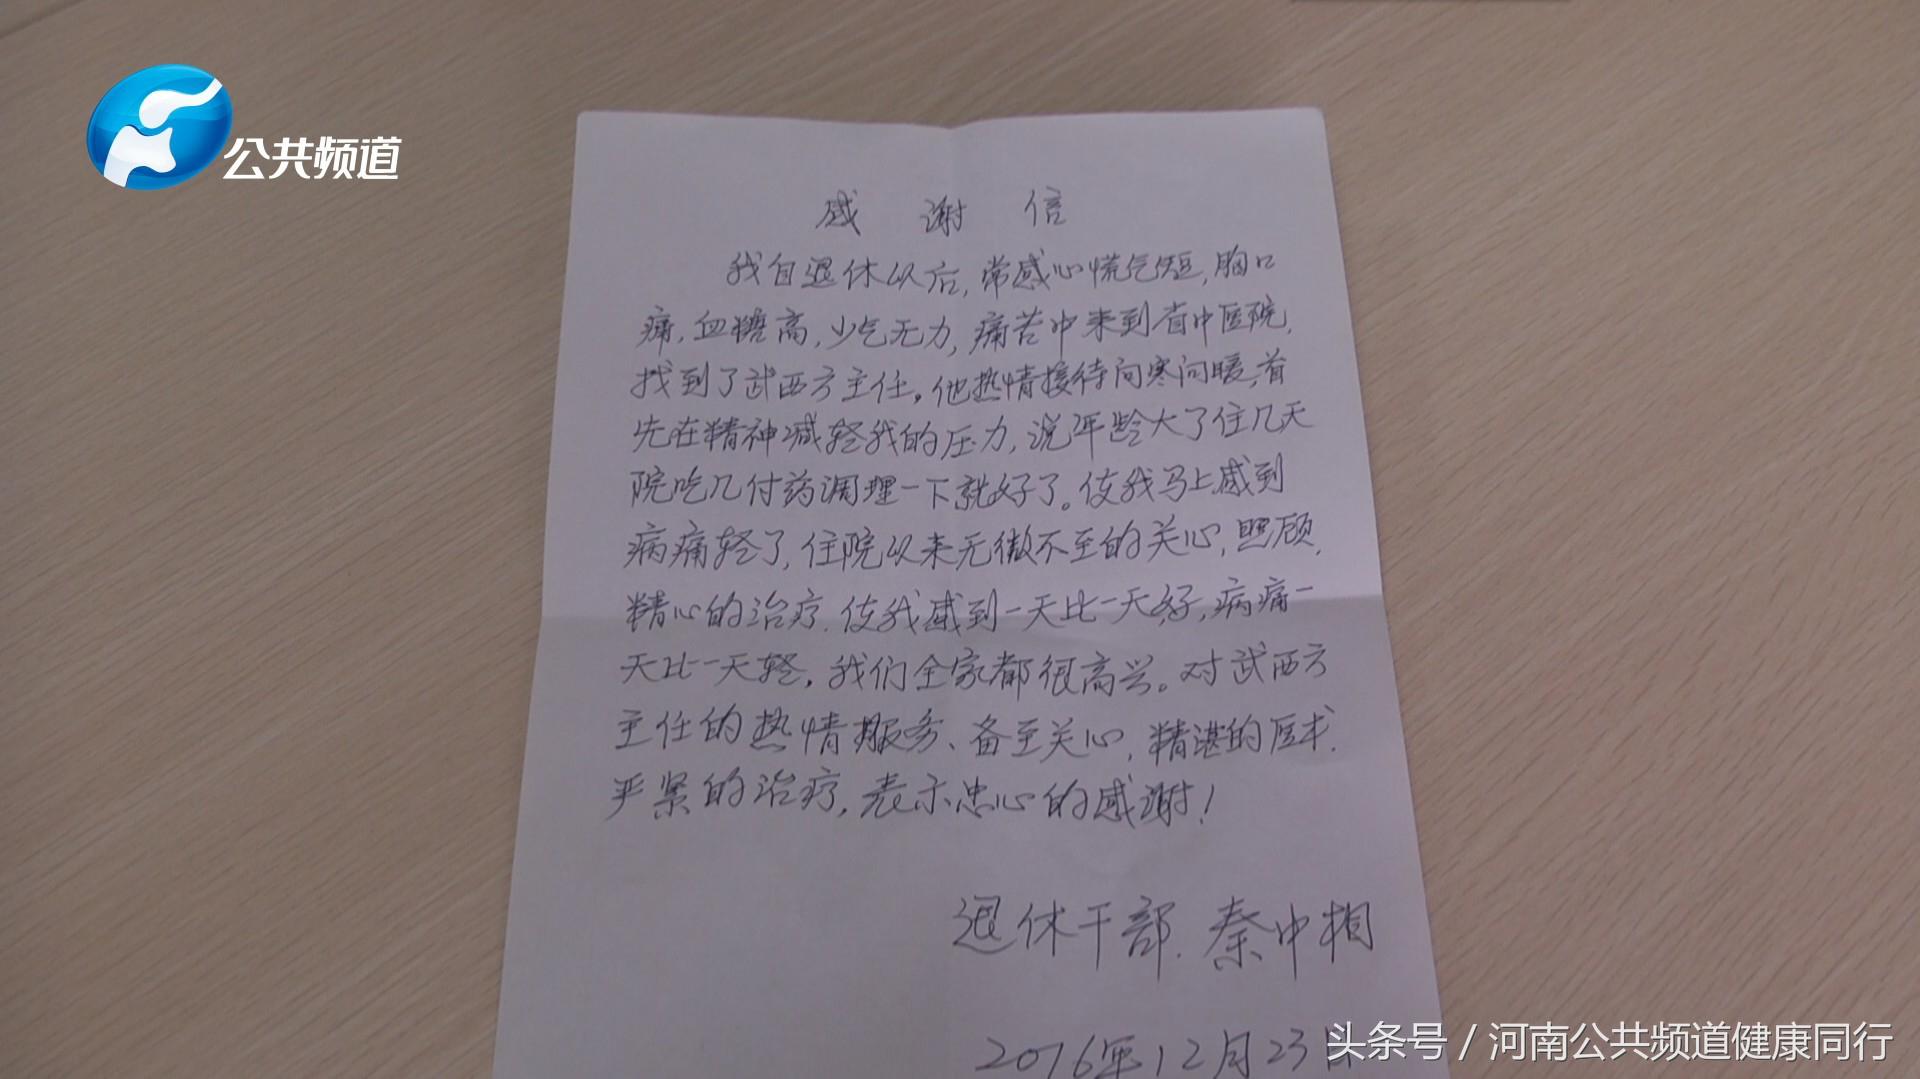 公共频道
感谢信
我自退休以后,常感心慌气短,胸口
痛,血糖高,少气无力,痛苦中来到省中医院,
找到了武西方主任。他热情接待问寒问暖,首
先在精神减轻我的压力,说年龄大了住几天
院吃几付药调理一下就好了。使我马上感到
病痛轻了,住院以来无微不至的关心,照顾,
精心的治疗.使我感到一天比一天好,病痛一
天比一天轻,我们全家都很高兴。对武西方
主任的热情服务、备至关心,精湛的医术.
严紧的治疗,表示忠心的感谢!
退休干部.秦中相
2016年12月23日
头条号 / 河南公共频道健康同行